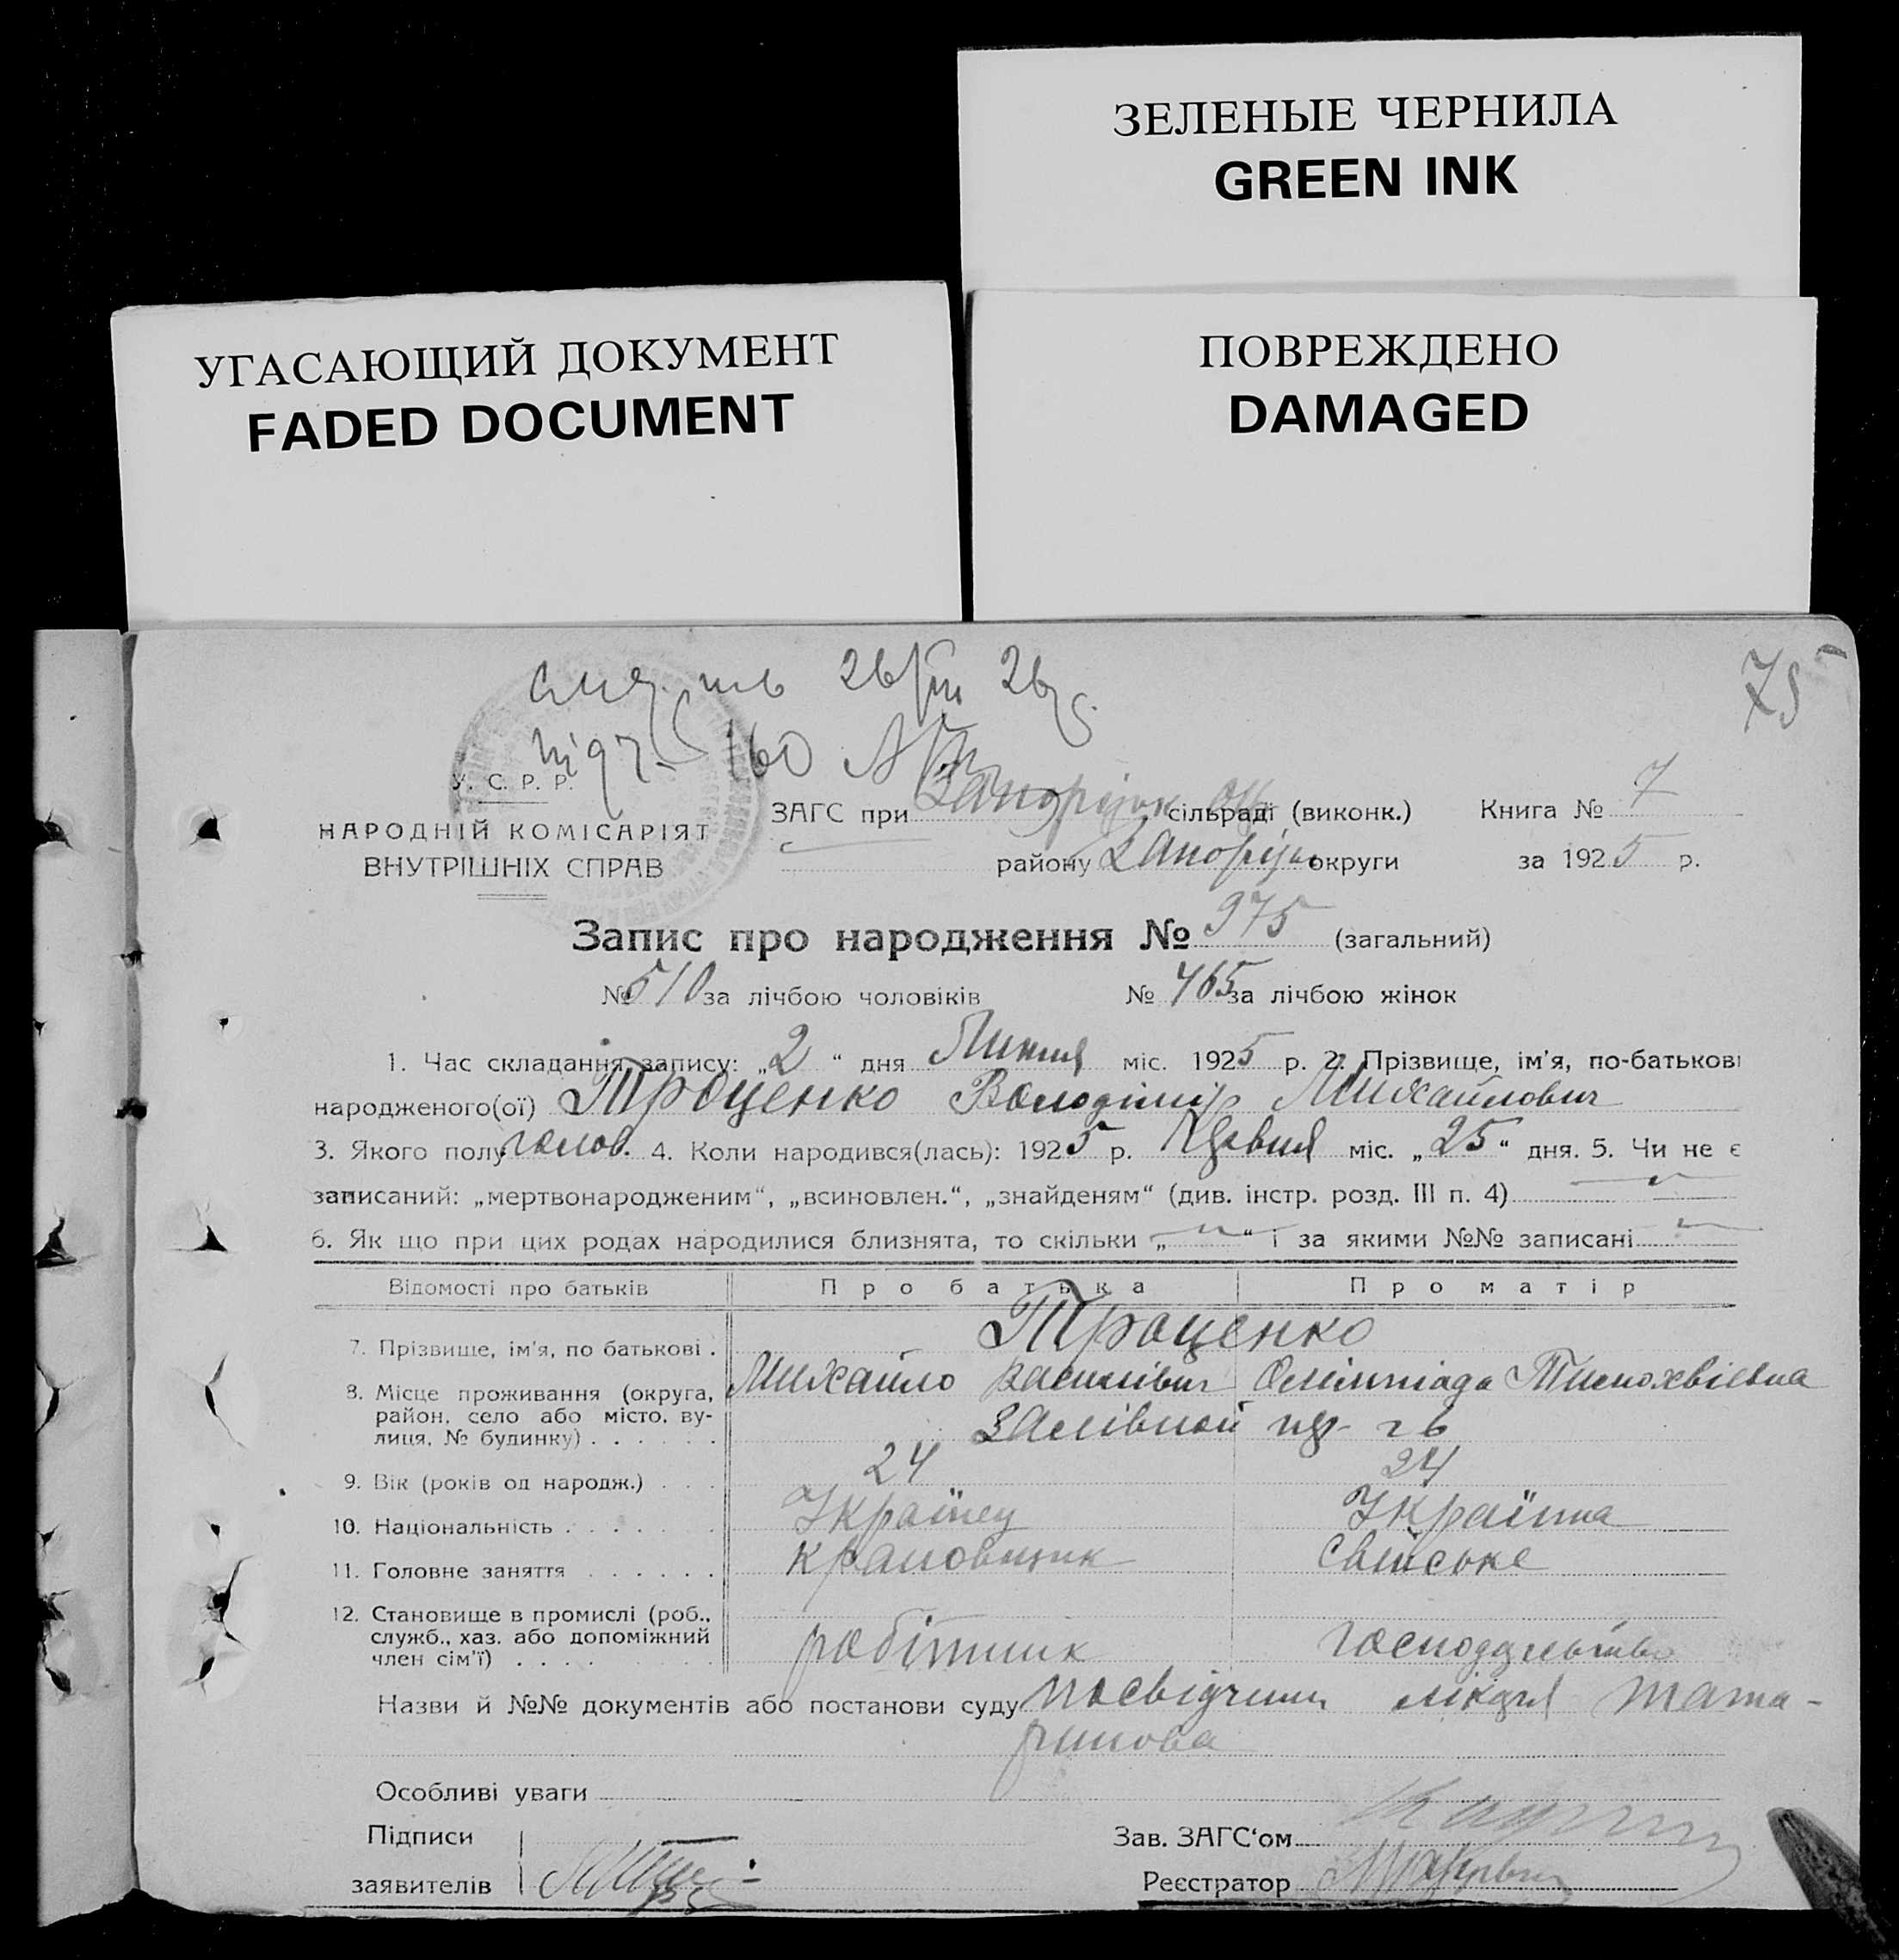 ЗЕЛЕНЫЕ ЧЕРНИЛА
GREEN INK
УГАСАЮЩИЙ ДОКУМЕНТ
FADED DOCUMENT
ПОВРЕЖДЕНО
DAMAGED
75
160
У. С. Р. Р.
НАРОДНІЙ КОМІСАРІЯТ
ВНУТРІШНІХ СПРАВ
ЗАГС при Запоріжк сільраді (виконк.) Книга № 7
району Запоріжк округи за 1925 р.
Запис про народження № 975 (загальний)
№ 510 за лічбою чоловіків № 465 за лічбою жінок
1. Час складання запису: „2“ дня Липня міс. 1925 р. 2. Прізвище, ім'я, по-батькові
народженого(ої) Троценко Володімір Михайлович
3. Якого полу чолов. 4. Коли народився(лась): 1925 р. Червня міс. „25“ дня. 5. Чи не є
записаний: „мертвонародженим“, „всиновлен.“, „знайденям“ (див. інстр. розд. III п. 4)
6. Як що при цих родах народилися близнята, то скільки „ “ і за якими №№ записані
Відомості про батьків Про батька Про матір
7. Прізвище, ім'я, по батькові . Троценко
Михайло Василівич Олімпіада Тимохвіевна
8. Місце проживання (округа,
район, село або місто, ву-
лиця, № будинку) . . . . . .
9. Вік (років од народж.) . . . 24 24
10. Національність . . . . . . . Українец Українка
11. Головне заняття . . . . . . крановщик свійське
12. Становище в промислі (роб.,
служб., хаз. або допоміжний
член сім'ї) . . . . робітник господарьство
Назви й №№ документів або постанови суду посвідчення лікаря Тата-
ринова
Особливі уваги
Підписи Зав. ЗАГС'ом
заявителів Реєстратор